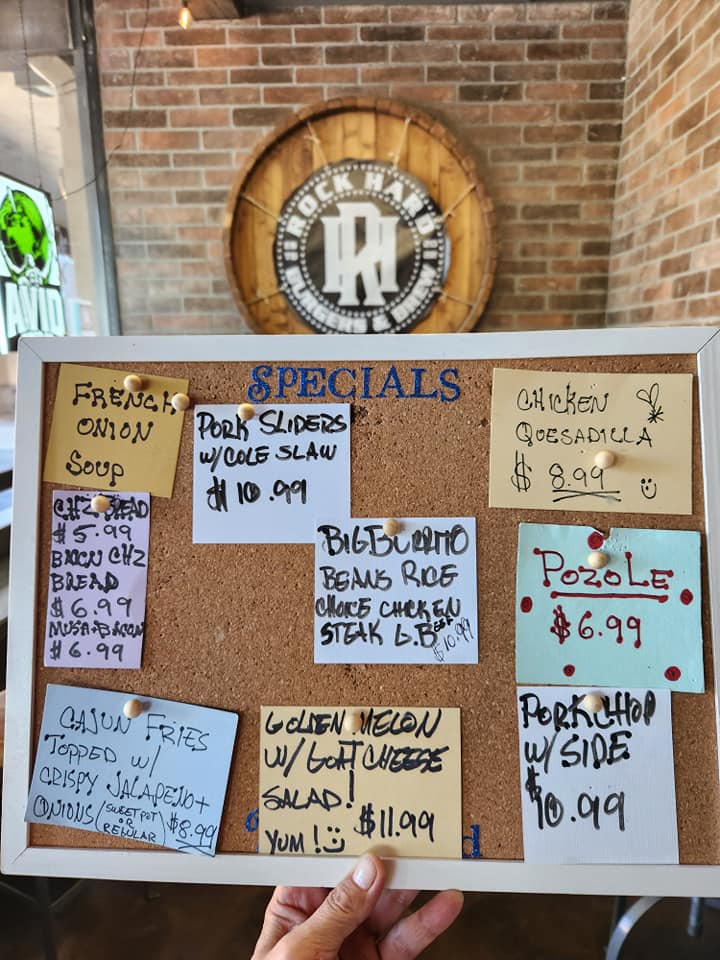 ROCK HARD
RH
BURGERS & BREW
AVID
SPECIALS
FRENCH
ONION
SOUP
PORK SLIDERS
W/COLE SLAW
$10.99
CHICKEN
QUESADILLA
$ 8.99
CHZ BREAD
$5.99
BACN CHZ
BREAD
$6.99
MUSH+BACON
$6.99
BIG BURRITO
BEANS RICE
CHOICE CHICKEN
STEAK G.BEEF
$10.99
POZOLE
$6.99
CAJUN FRIES
TOPPED W/
CRISPY JALAPENO+
ONIONS (SWEET POT
OR
REGULAR) $8.99
GOLDEN MELON
W/ GOAT CHEESE
SALAD!
YUM! $11.99
PORKCHOP
W/ SIDE
$10.99